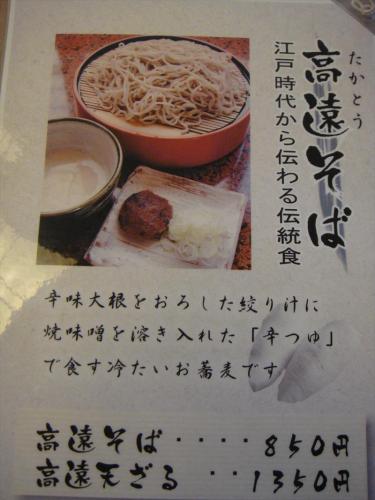 たかとう
高遠そば
江戸時代から伝わる伝統食
辛味大根をおろした絞り汁に
焼味噌を溶き入れた「辛つゆ」
で食す冷たいお蕎麦です
高遠そば・・・・850円
高遠天ざる・・1350円